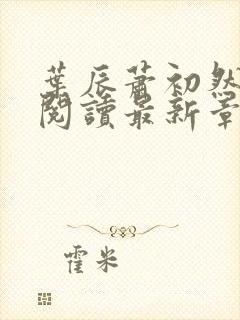 葉辰蕭初然
閱讀最新章
霍米